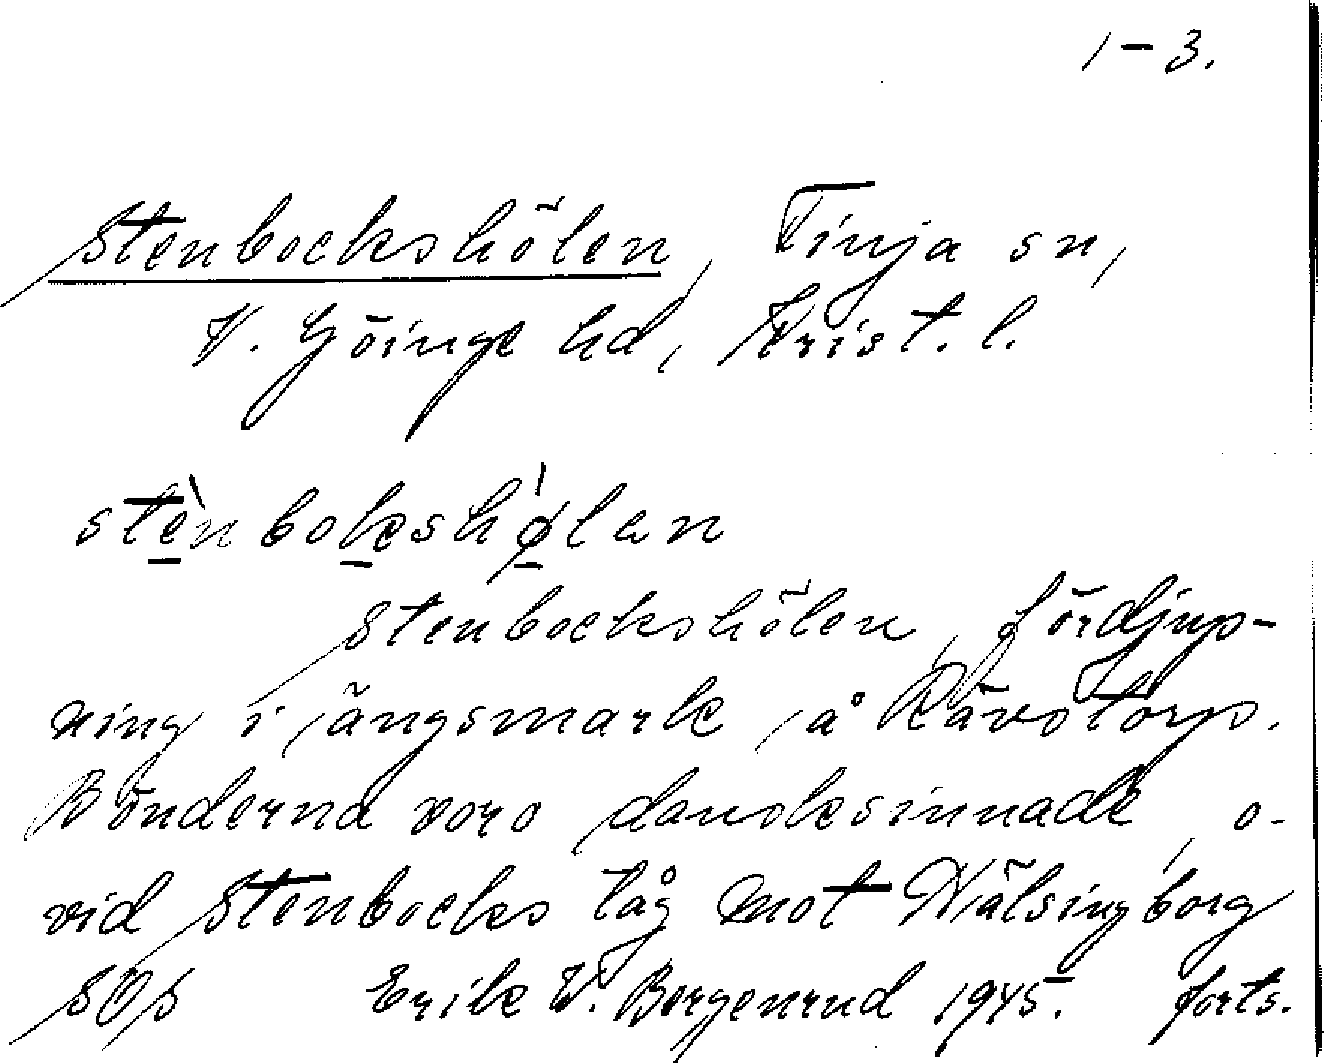 1-3.
Stenbockshölen, Finja sn,
V. Göinge hd, Krist. l.
stènbokshø̀lan
Stenbockshölen, fördjup-
ning i ängsmark å Rävstorp.
Bönderna voro dansksinnade, o-
vid Stenbocks tåg mot Hälsingborg
SOS Erik W. Borgenrud 1945. forts.